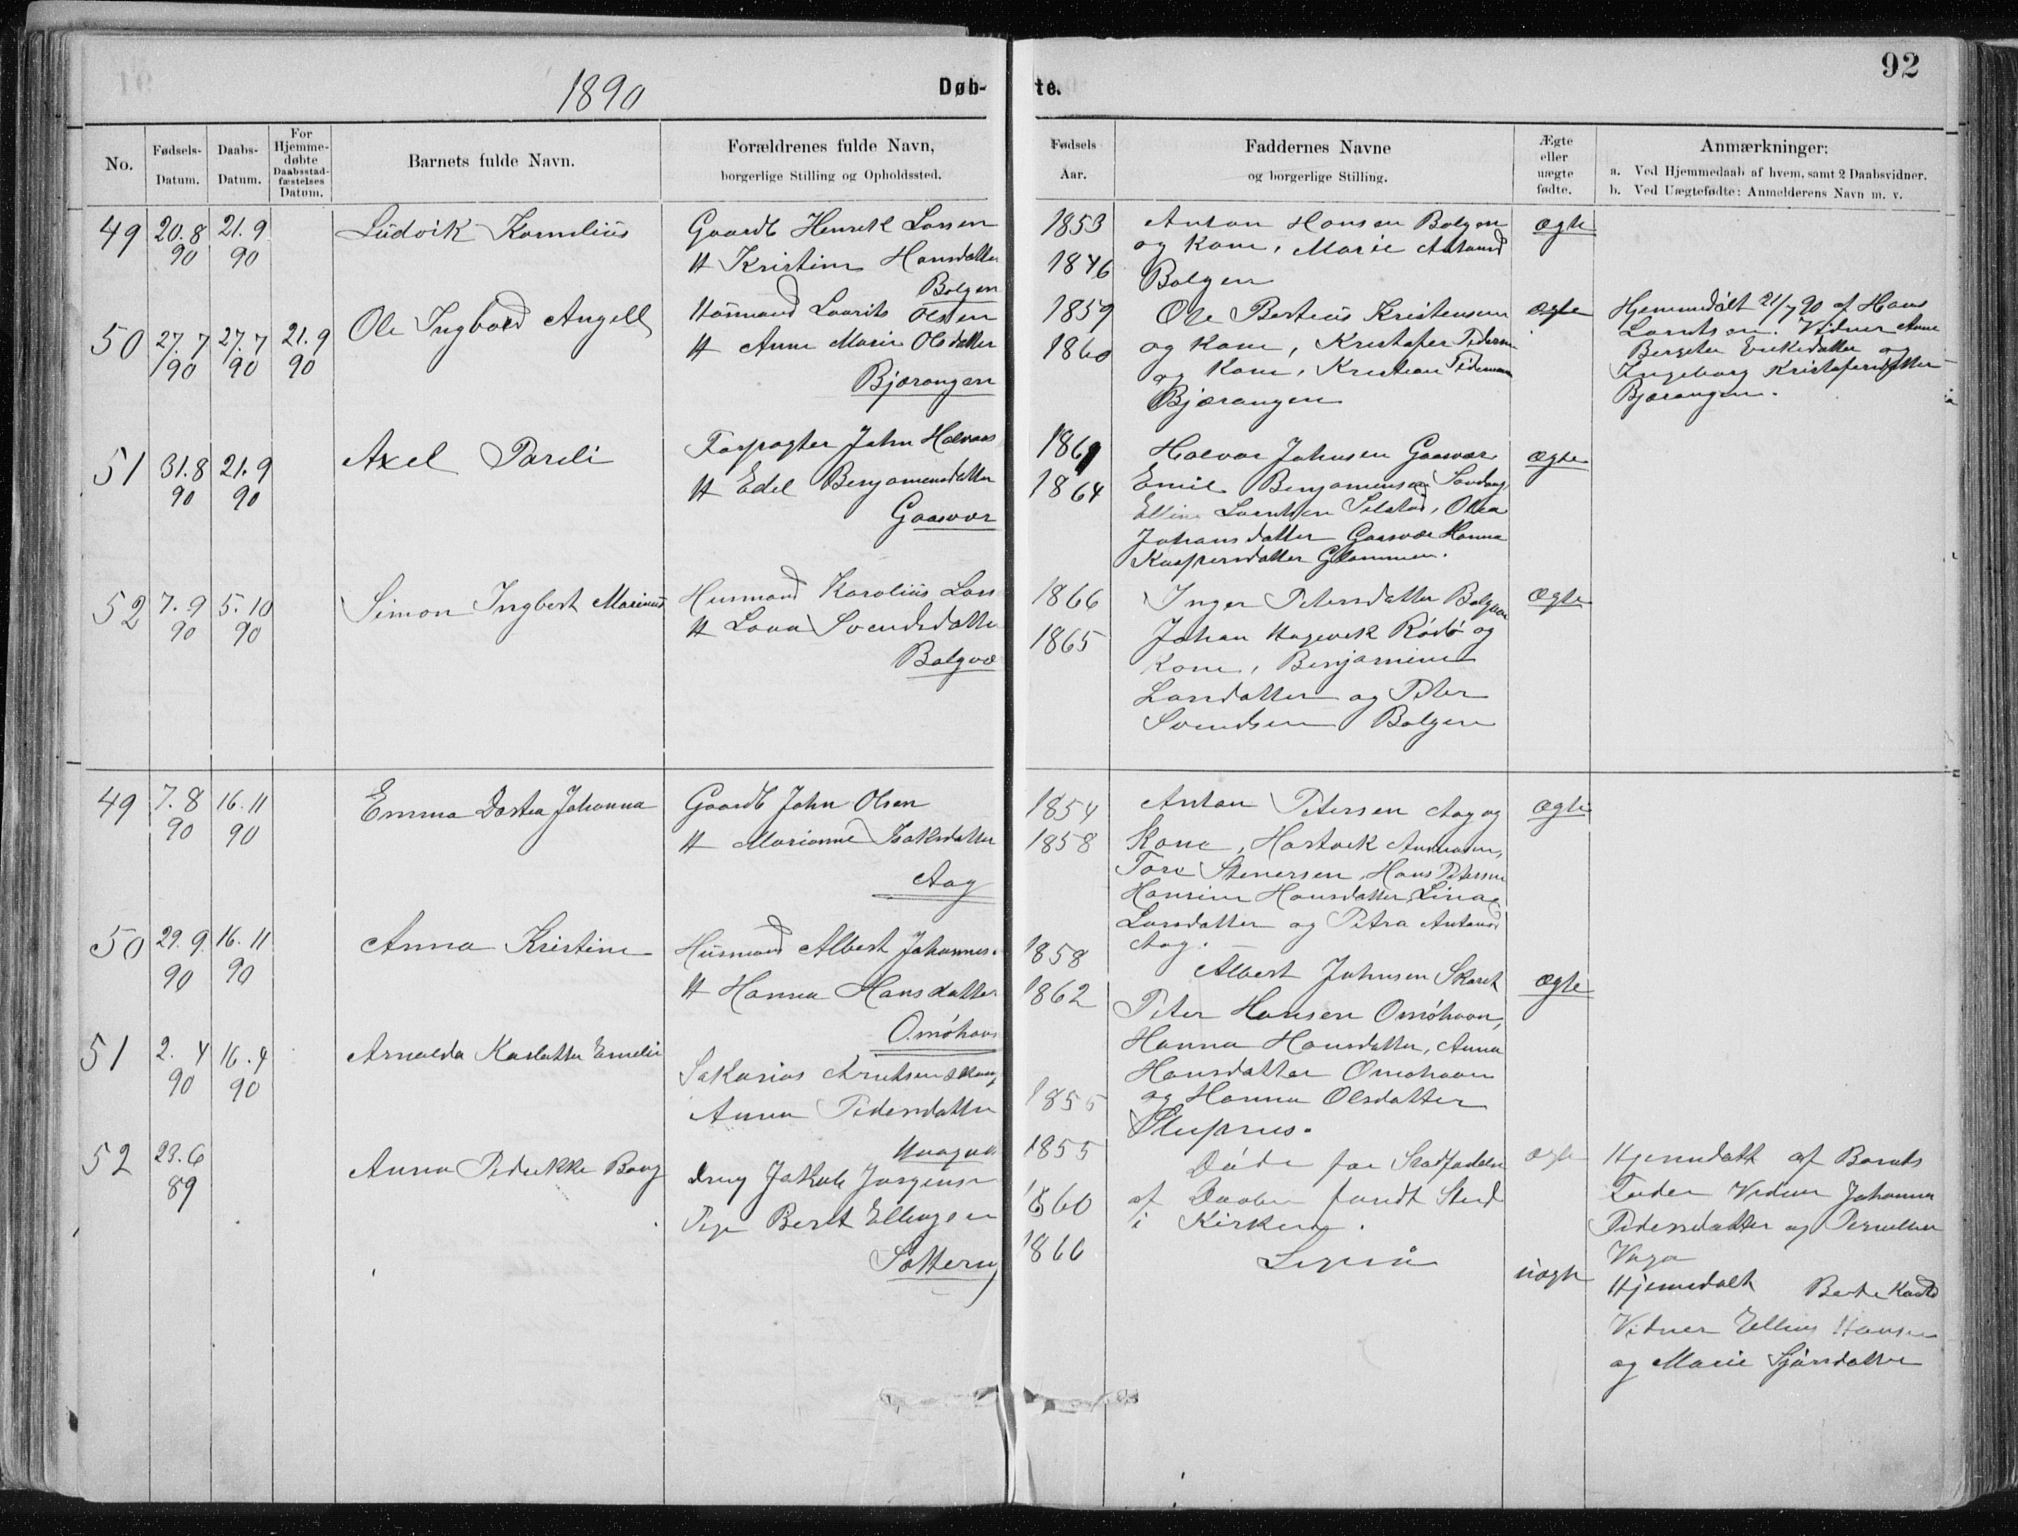 92
1890
Døbte.
No.
Fødsels-Datum.
Daabs-Datum.
For Hjemmedøbte Daabsstadfæstelses Datum.
Barnets fulde Navn.
Forældrenes fulde Navn,
borgerlige Stilling og Opholdssted.
Fødsels Aar.
Faddernes Navne
og borgerlige Stilling.
Ægte eller uægte fødte.
Anmærkninger:
a. Ved Hjemmedaab af hvem, samt 2 Daabsvidner.
b. Ved Uægtefødte: Anmelderens Navn m. v.
49 20.8 90 21.9 90
Ludvik Kornelius
Gaardb Henrik Larsen
H Kristine Hansdatter
Bolgen
1853
1846
Anton Hansen Bolgen
og Kone, Marie
Bolgen
ægte
50 27.7 90 27.7 90 21.9 90
Ole Ingbord Angell
Husmand Laurits Olsen
H Anne Marie Olsdatter
Bjærangen
1859
1860
Ole Berteus Kristensen
og Kone, Kristofer Pedersen
og Kone, Kristian
Bjærangen
ægte
Hjemmedøbt 21/7 90 af Hans
Larntsen. Vidner Anne
Bergete Eriksdatter og
Ingeborg Kristofersdatter
Bjærangen.
51 31.8 90 21.9 90
Axel Pareli
Forpagter John Halvors
H Edel Benjamensdatter
Gaasvær
1861
1864
Halvor Johnsen Gaasvær
Emil Benjamensen
Larntsen Selstad, Olea
Johansdatter Gaasvær Hanna
Kaspersdatter Glommen.
ægte
52 7.9 90 5.10 90
Simon Ingbert Marinus
Husmand Karolius Lars
H Lava Svendsdatter
Bolgvæ
1866
1865
Inger Petersdatter
Johan Hagevik Rødø og
Kone, Benjamine
Larsdatter og Peter
Svendsen Bolgen
ægte
49 7.8 90 16.11 90
Emma Dortea Johanna
Gaardb John Olsen
H Marianne Isaksdatter
Aag
1854
1858
Anton Petersen Aag og
Kone, Hartvik
Tore Stenersen, Hans Petersen
Hansine Hansdatter, Lina
Larsdatter og Petra
Aag.
ægte
50 29.9 90 16.11 90
Anna Kristine
Husmand Albert Johannes.
H Hanna Hansdatter
Omøhavn
1858
1862
Albert Johnsen Skaret
Peter Hansen Omøhavn,
Hanna Hansdatter, Anna
Hansdatter Omøhavn
og Hanna Olsdatter
ægte
51 2.4 90 16.4 90
Arnolda Karlotta Emelie
Sakarias Arntsen
Anna Pedersdatter
1855
1855
Døde før Stadfæstelse
af Daaben fandt Sted
i Kirken.
ægte
Hjemdøbt af Barnets
Fader Vidner Johanna
Pedersdatter og Pernelle
Vaga
52 23.6 89
Anna Petrikke Borg
Dreng Jakob Jørgensen
Pige Berit Ellingsen
1860
1866
uægte
Hjemmedøbt
Vidner Elling Hansen
og Marie Sjursdatter